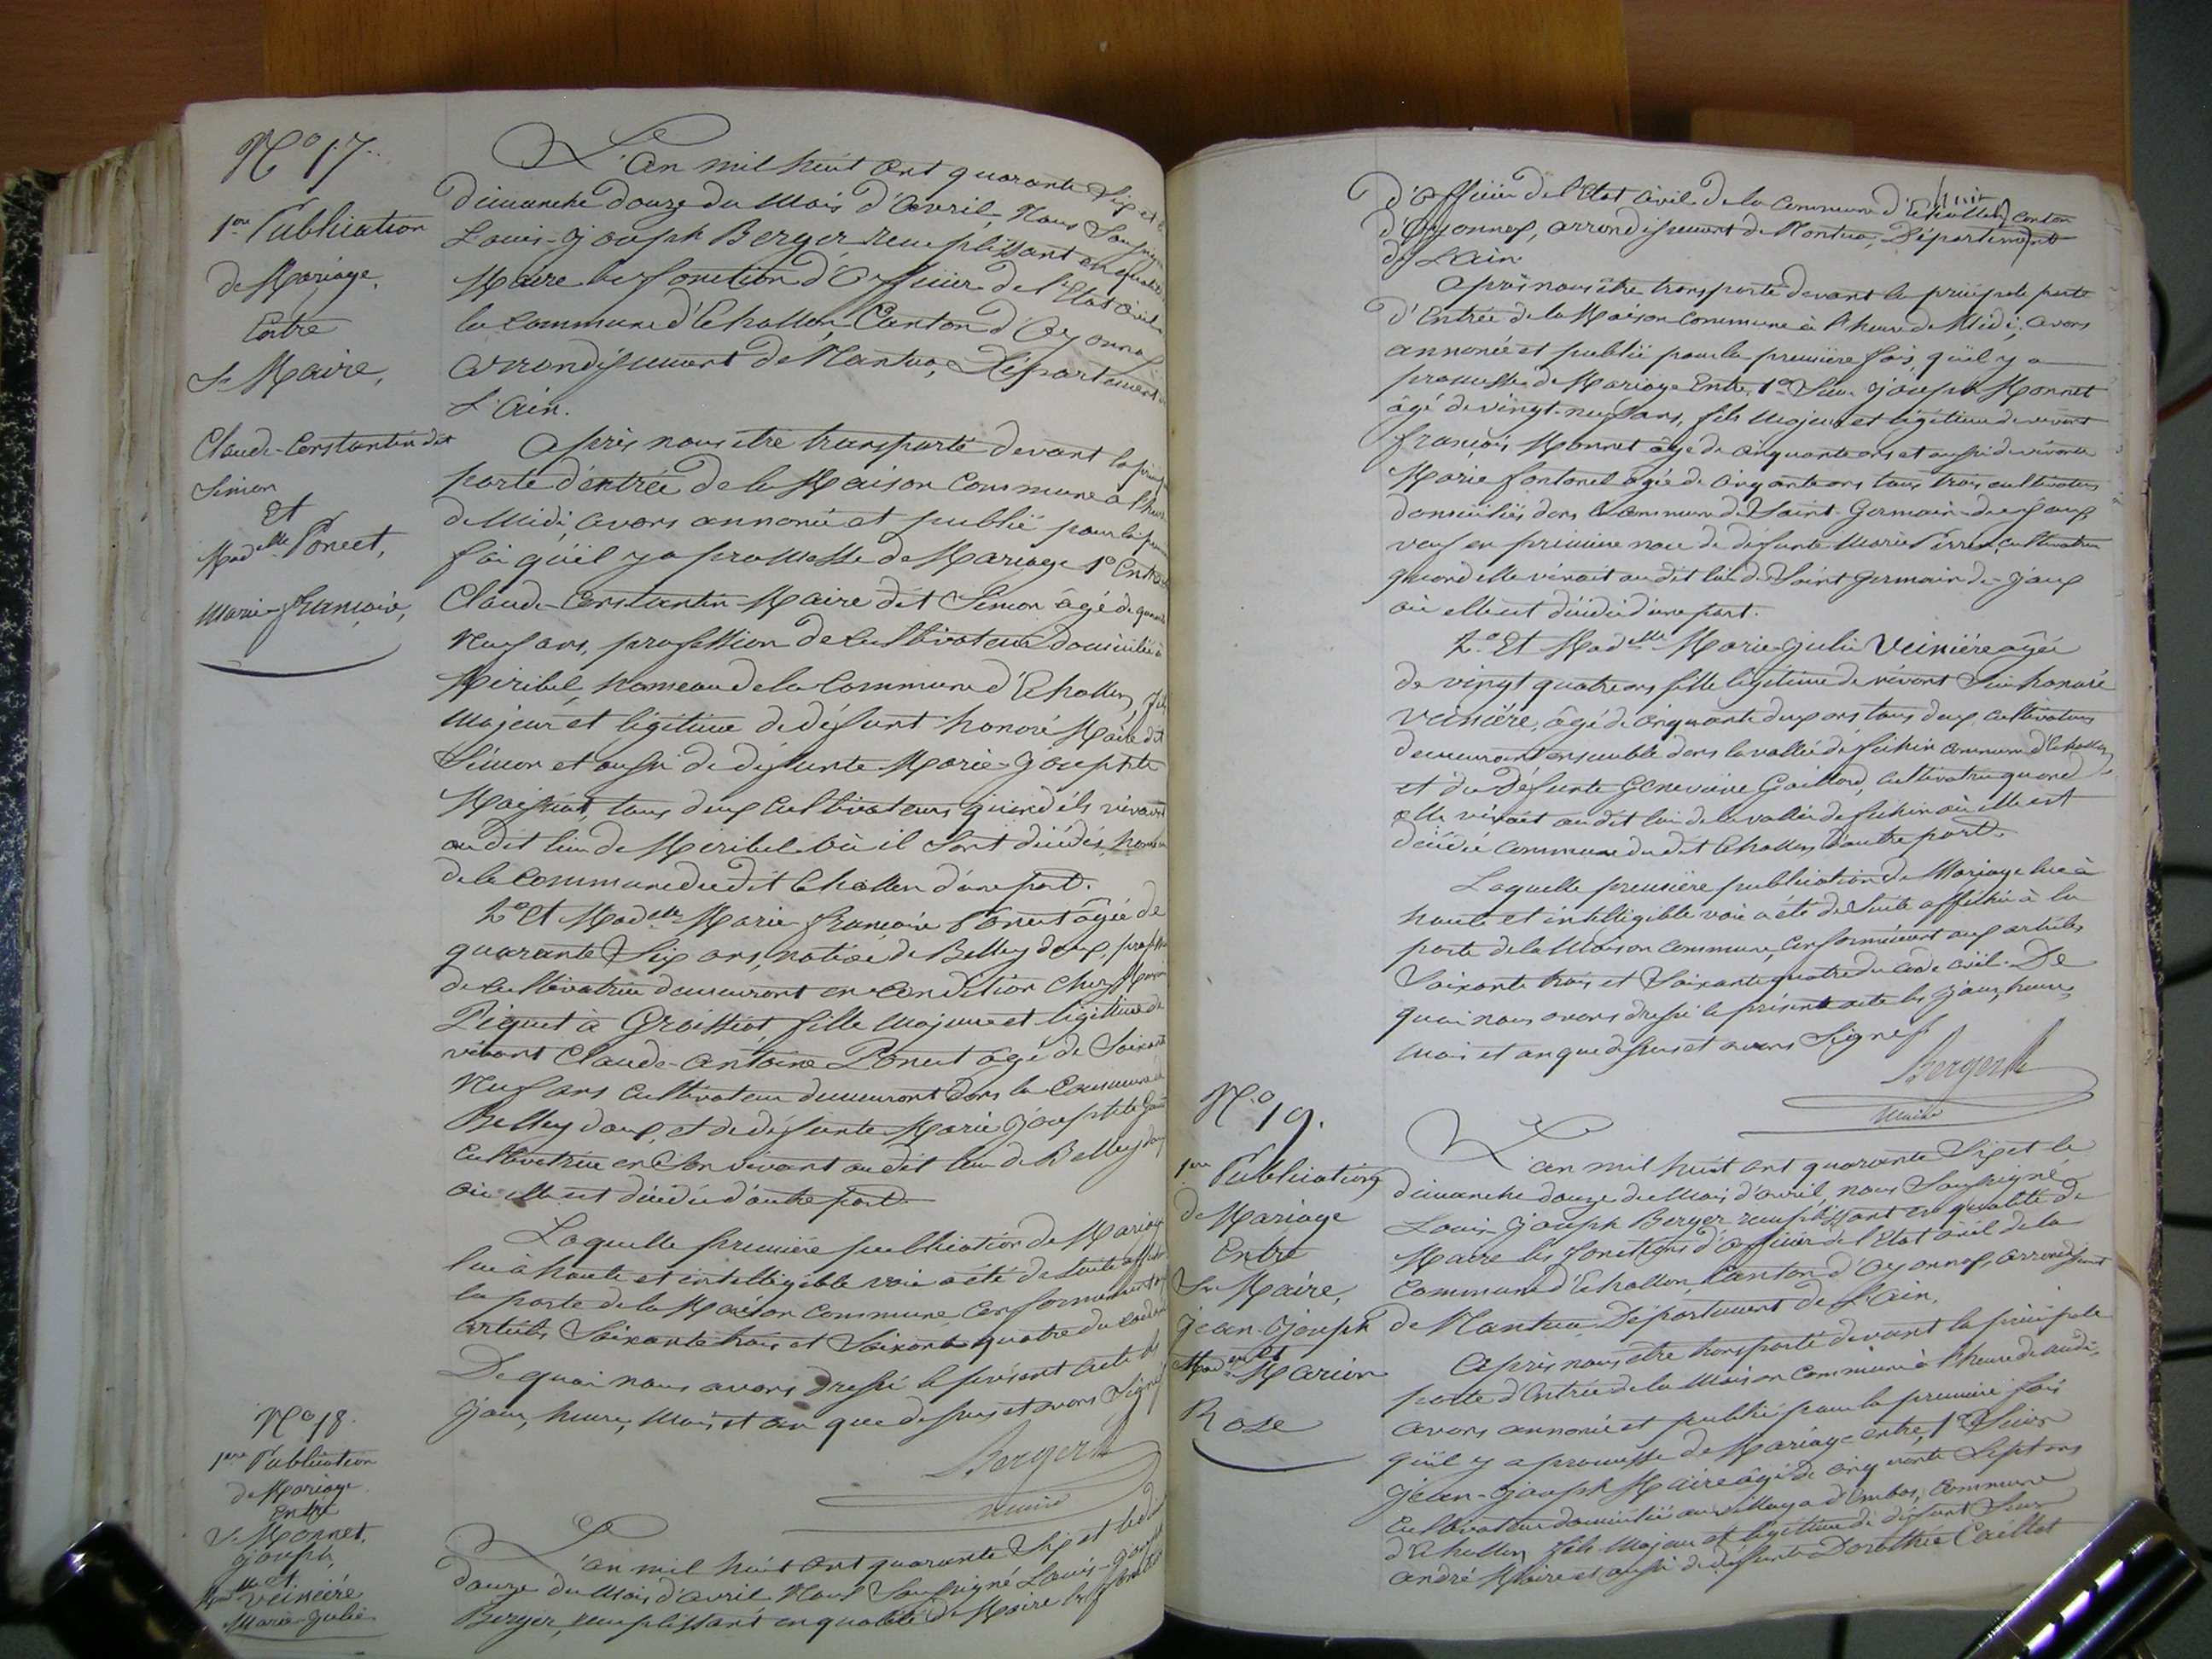 N.o 17.
1ere Publication
de Mariage,
Entre
Sr Maire,
Claude-Constantin dit
Simon
Et
Madelle Poncet,
Marie-françoise,
L'an mil huit cent quarante Six et le
Dimanche douze du Mois d'Avril, Nous Soussigné
Louis-Joseph Berger remplissant en qualité
Maire les fonction d'Officier de l'Etat Civil
la commune d'Echallon, Canton d'Oyonnax
arrondissement de Nantua, Département
L'Ain.
Après nous être transporté devant la
porte d'entrée de la Maison Commune à l'heure
de Midi, avons annoncé et publié pour la
fois qu'il y a promesse de Mariage 1o Entre
Claude-Constantin Maire dit Simon âgé de
Neuf ans, profession de cultivateur domicilié à
Miribel, hameau de la commune d'Echallon, fils
Majeur et légitime de défunt honoré Maire dit
Simon et aussi de défunte Marie-Josephte
Maissiat, tous deux cultivateurs quand ils vivaient
au dit lieu de Miribel où il sont décédés, hameau
de la commune du dit Echallon d'une part.
2o Et Madelle Marie-françoise Poncet âgée de
quarante Six ans, native de Belleydoux,
de cultivatrice demeurant en condition chez
Piquet à Groissiat, fille Majeure et légitime de
vivant Claude-Antoine Poncet âgé de Soixante
Neuf ans cultivateur demeurant dans la Commune de
Belleydoux, et de défunte Marie Josephte
cultivatrice en Son vivant au dit lieu de Belleydoux
où elle est décédée d'autre part.
Laquelle première publication de Mariage
lue à haute et intelligible voix a été de Suite
la porte de la Maison commune, conformément
articles Soixante trois et Soixante quatre du code
De quoi nous avons dressé le présent acte les
jour, heure, Mois et an que dessus et avons Signé
Berger
Maire
N.o 18.
1ere Publication
de Mariage
Entre
Sr Monnet,
Joseph,
et
Melle Veinière
Marie-Julie
L'an mil huit cent quarante Six et le
douze du Mois d'Avril Nous Soussigné Louis-Joseph
Berger, remplissant en qualité de Maire les fonctions
d'Officier de l'Etat Civil de la commune d'Echallon, canton
d'Oyonnax, arrondissement de Nantua, Département
de L'Ain.
Après nous être transporté devant la principale porte
d'Entrée de la Maison commune à l'heure de Midi, avons
annoncé et publié pour la première fois, qu'il y a
promesse de Mariage Entre, 1o Sieur Joseph Monnet
âgé de vingt-neuf ans, fils Majeur et légitime de vivant
françois Monnet âgé de cinquante ans et aussi de vivante
Marie fontanel âgée de cinquante ans tous trois cultivateurs
domiciliés dans la commune de Saint-Germain-de-Joux
veuf en premiere noce de défunte Marie Perrin, cultivatrice
quand elle vivait au dit lieu de Saint-Germain-de-Joux
où elle est décédée d'une part.
2o Et Madelle Marie-Julie Veinière âgée
de vingt quatre ans fille légitime de vivant Sieur honoré
Veinière, âgé de cinquante deux ans tous deux cultivateurs
demeurant ensemble dans la vallée de commune d'Echallon,
et de Défunte Geneviève Gaillard, cultivatrice quand
elle vivait au dit lieu de la vallée de où elle est
décédée commune du dit Echallon d'autre part.
Laquelle première publication de Mariage lue à
haute et intelligible voix a été de Suite affichée à la
porte de la Maison commune, conformément aux articles
Soixante trois et Soixante quatre du code civil. De
quoi nous avons dressé le présent acte les jour, heure,
Mois et an que dessus et avons Signé
Berger
Maire
N.o 19.
1ere Publication
de Mariage
Entre
Sr Maire,
Jean-Joseph
et
Madelle Marion
Rose
L'an mil huit cent quarante Six et le
dimanche douze du Mois d'avril, nous Soussigné
Louis-Joseph Berger remplissant en qualité de
Maire les fonctions d'officier de l'Etat civil de la
Commune d'Echallon, Canton d'Oyonnax, arrondissement
de Nantua, Département de L'Ain.
Après nous être transporté devant la principale
porte d'Entrée de la Maison commune à l'heure de midi,
avons annoncé et publié pour la première fois
qu'il y a promesse de Mariage entre, 1o Sieur
Jean-Joseph Maire âgé de cinquante Sept ans
cultivateur domicilié au Village d'Embas, Commune
d'Echallon, fils Majeur et légitime de défunt Sieur
André Maire et aussi de défunte Dorothée Caillat